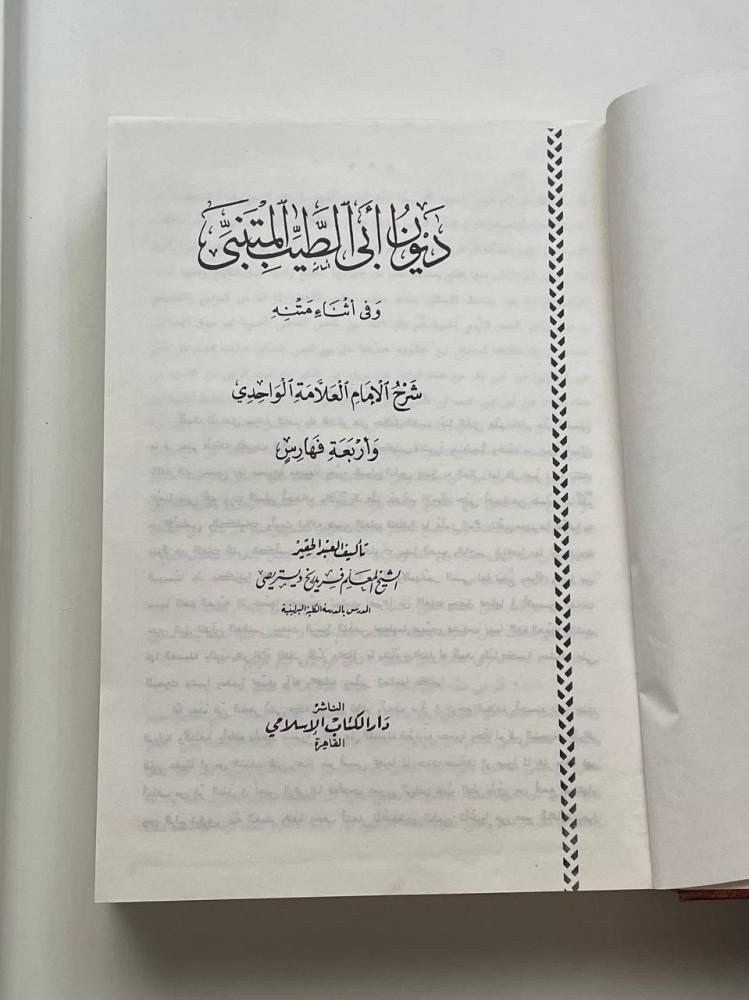 ديوان أبى الطيب المتنبى
وفى أثناء متنه
شرح الإمام العلامة الواحدي
وأربعة فهارس
تأليف العبد الحقير
الشيخ المعلم فريدرخ ديتريصى
المدرس بالمدرسة الكلية البرلينية
الناشر
دار الكتاب الإسلامي
القاهرة